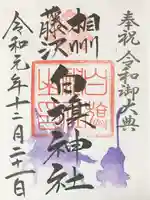 奉祝令和御大典
相州
藤沢
白旗神社
令和元年十二月二十一日